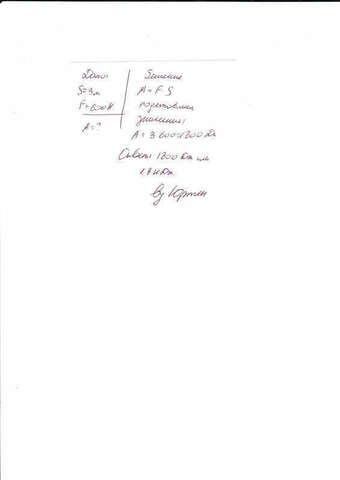 Дано:
S=3м
F=600Н
A=?
Решение
A=F S
подставим
значения:
A=3 600=1800 Дж
Ответ: 1800 Дж или
1,8 кДж
By Юртен